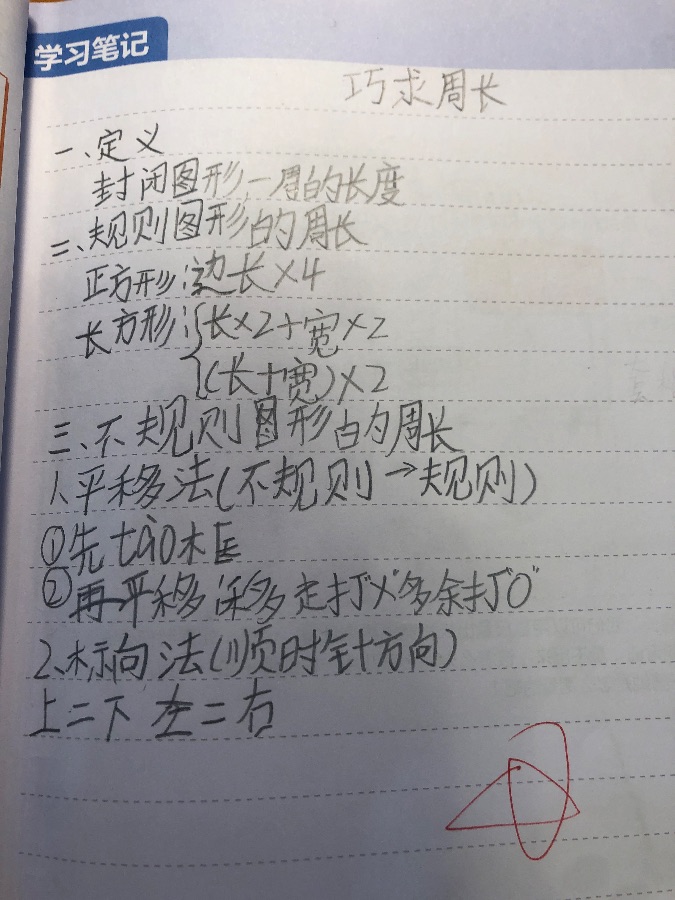 学习笔记
巧求周长
一、定义
封闭图形一周的长度
二、规则图形的周长
正方形:边长×4
长方形:{长×2+宽×2
{(长+宽)×2
三、不规则图形的周长
1.平移法(不规则→规则)
①先七向木匡
②再平移 移走打"×"多余打"O"
2.标向法(顺时针方向)
上=下 左=右